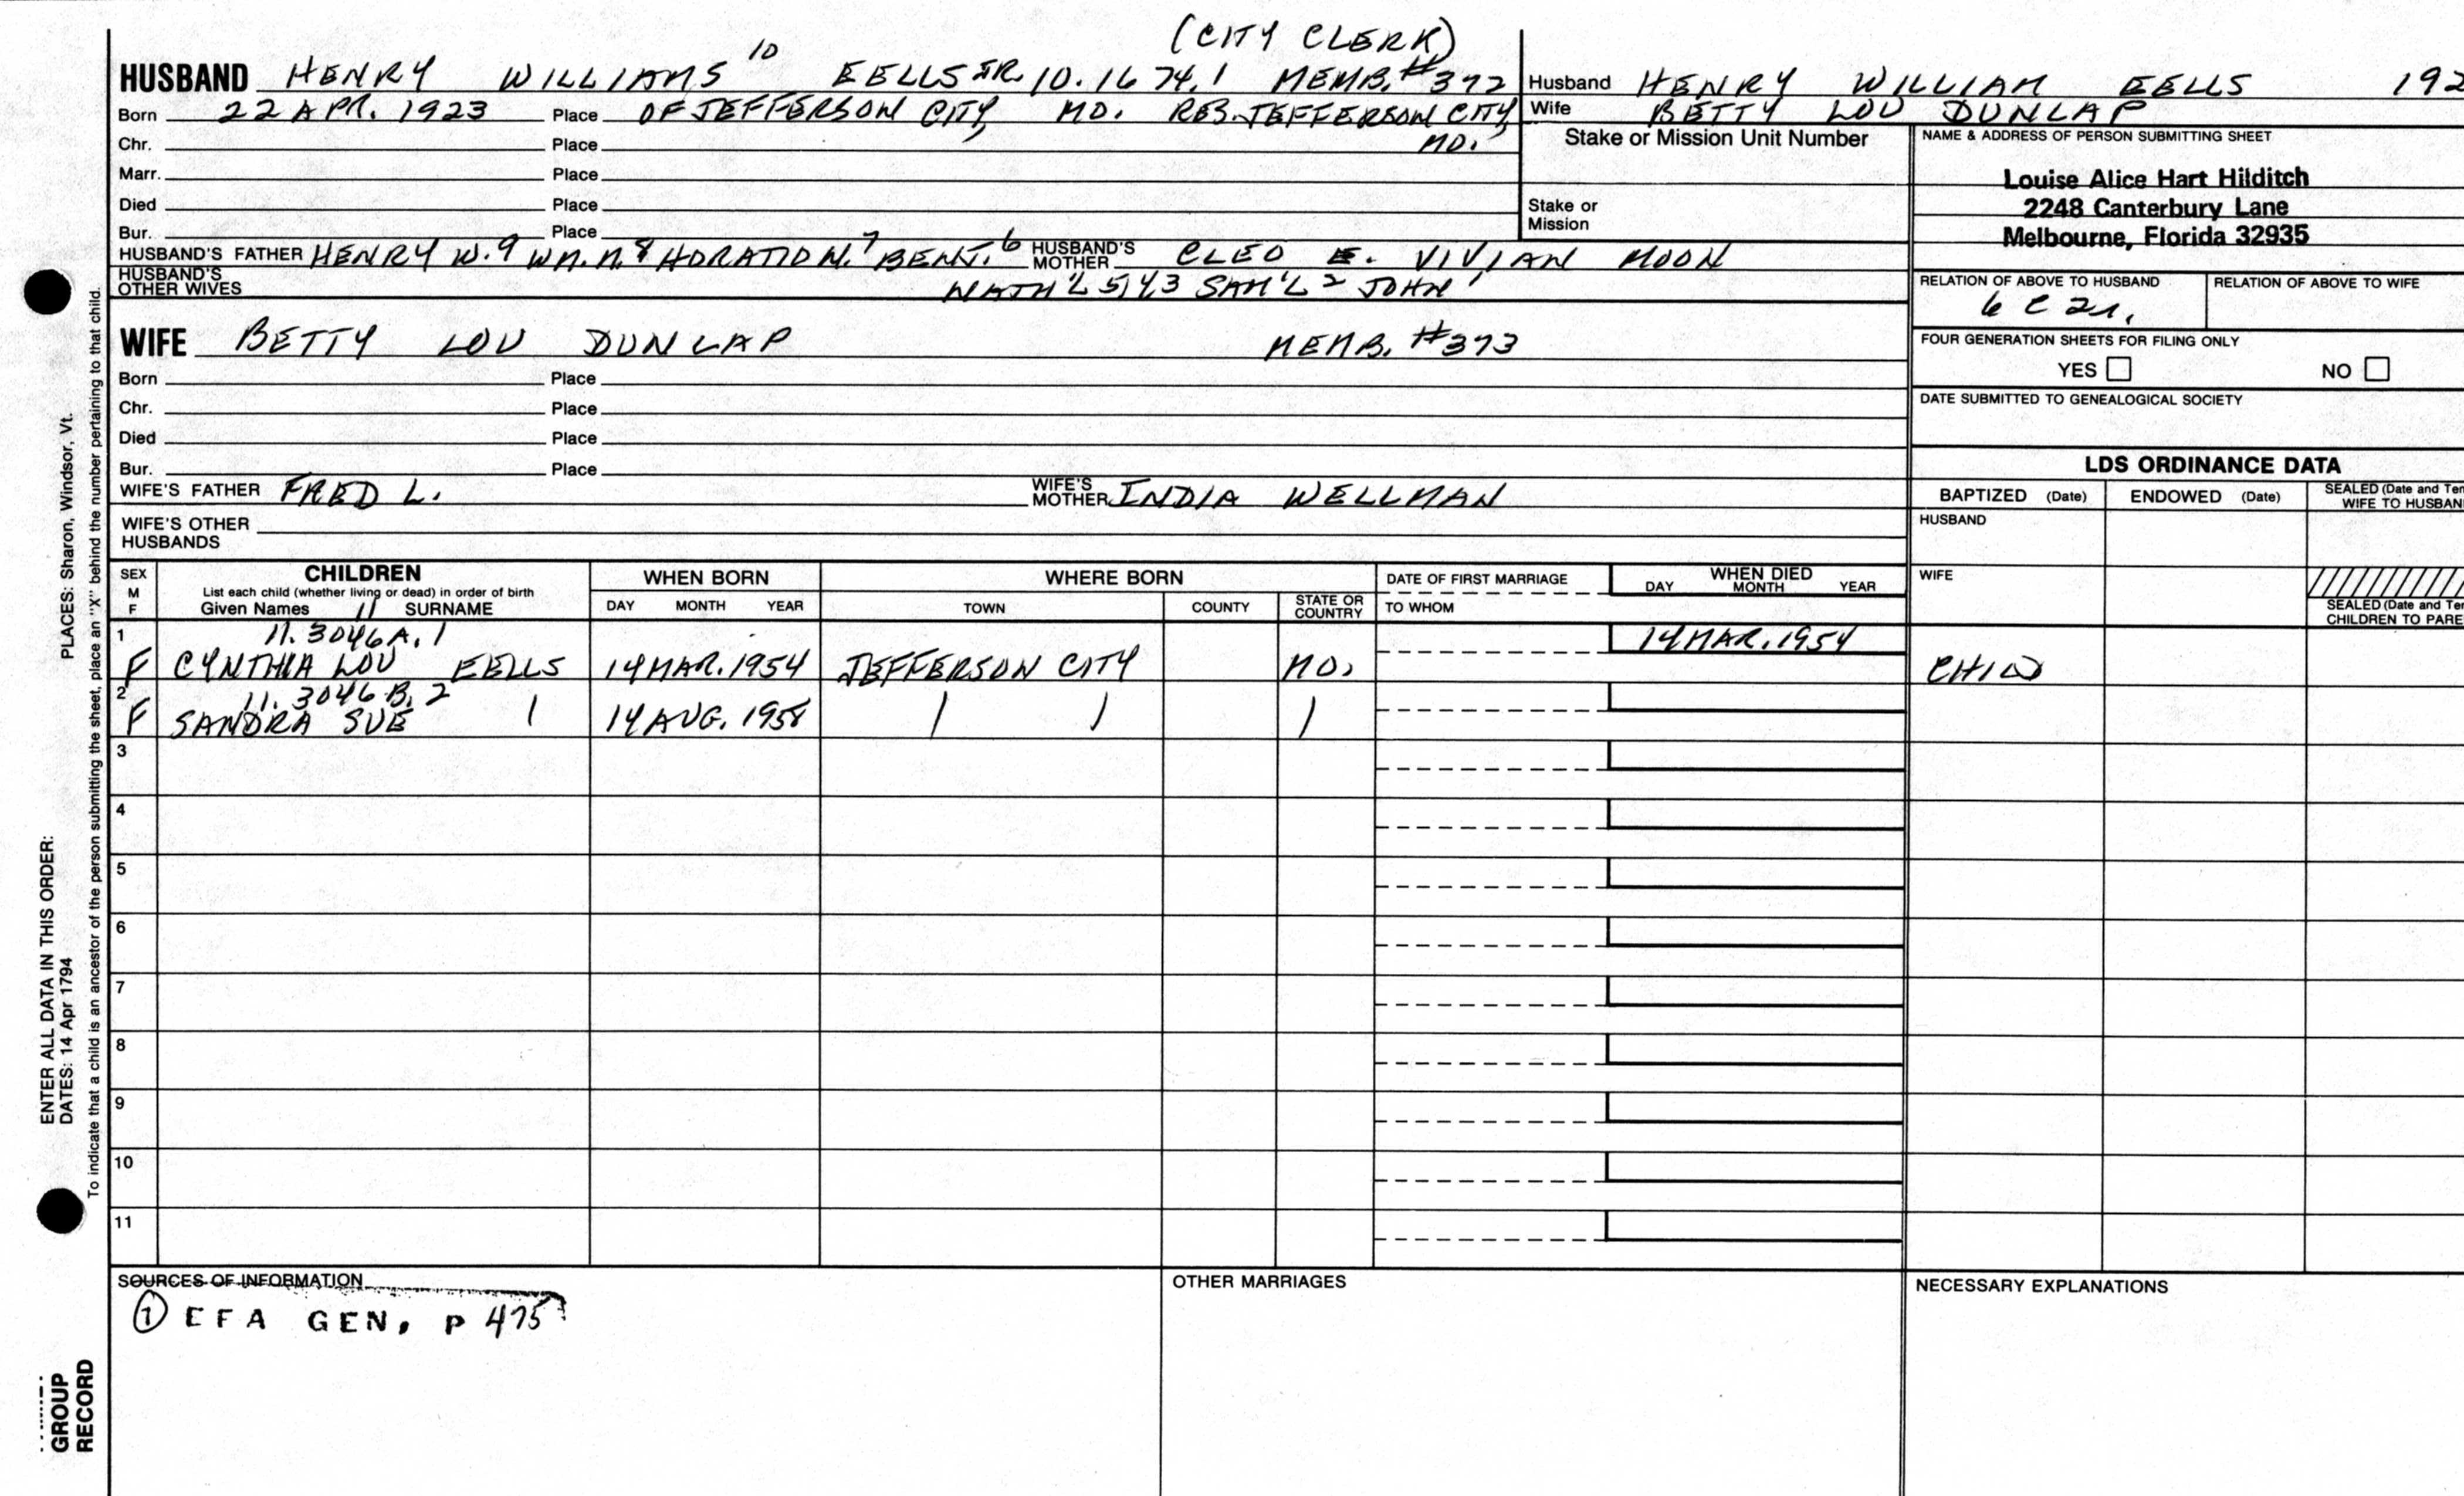 (CITY CLERK)
HUSBAND HENRY WILLIAMS 10 EELLS JR. 10.1674.1 MEMB. #372
Born 22 APR. 1923 Place OF JEFFERSON CITY, MO. RES. JEFFERSON CITY,
Chr. Place MO.
Marr. Place
Died Place
Bur. Place
HUSBAND'S FATHER HENRY W.9 WM. M.8 HORATIO N.7 BENJ.6 HUSBAND'S MOTHER CLEO E. VIVIAN MOON
HUSBAND'S OTHER WIVES NATH'L 5,4,3 SAM'L 2 JOHN 1
WIFE BETTY LOU DUNLAP MEMB. #373
Born Place
Chr. Place
Died Place
Bur. Place
WIFE'S FATHER FRED L. WIFE'S MOTHER INDIA WELLMAN
WIFE'S OTHER
HUSBANDS
Husband HENRY WILLIAM EELLS 192
Wife BETTY LOU DUNLAP
Stake or Mission Unit Number
Stake or
Mission
NAME & ADDRESS OF PERSON SUBMITTING SHEET
Louise Alice Hart Hilditch
2248 Canterbury Lane
Melbourne, Florida 32935
RELATION OF ABOVE TO HUSBAND RELATION OF ABOVE TO WIFE
6 C 2r.
FOUR GENERATION SHEETS FOR FILING ONLY
YES NO
DATE SUBMITTED TO GENEALOGICAL SOCIETY
LDS ORDINANCE DATA
BAPTIZED (Date) ENDOWED (Date) SEALED (Date and Tem
WIFE TO HUSBAN
HUSBAND
WIFE
SEALED (Date and Tem
CHILDREN TO PARE
SEX
M
F
CHILDREN
List each child (whether living or dead) in order of birth
Given Names 11 SURNAME
WHEN BORN
DAY MONTH YEAR
WHERE BORN
TOWN COUNTY STATE OR COUNTRY
DATE OF FIRST MARRIAGE
TO WHOM
WHEN DIED
DAY MONTH YEAR
1 11.3046A.1 14 MAR. 1954
F CYNTHIA LOU EELLS 14 MAR. 1954 JEFFERSON CITY MO. CHILD
2 11.3046B.2
F SANDRA SUE 14 AUG. 1958
3
4
5
6
7
8
9
10
11
SOURCES OF INFORMATION
1 EFA GEN. P 475
OTHER MARRIAGES
NECESSARY EXPLANATIONS
ENTER ALL DATA IN THIS ORDER:
DATES: 14 Apr 1794 PLACES: Sharon, Windsor, Vt.
To indicate that a child is an ancestor of the person submitting the sheet, place an "X" behind the number pertaining to that child.
GROUP
RECORD